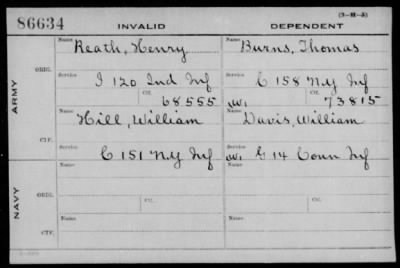 86634 INVALID DEPENDENT (3-H-5)
Name Reath, Henry Name Burns, Thomas
ARMY ORIG. Service I 120 Ind Inf Service C 158 N.Y. Inf
Ctf. 68555 W. Ctf. 73815
Name Hill, William Name Davis, William
CTF. Service C 151 N.Y. Inf Service W. G 14 Conn Inf
NAVY Name Name
ORIG. Service Ctf. Service Ctf.
Name Name
CTF. Service Service